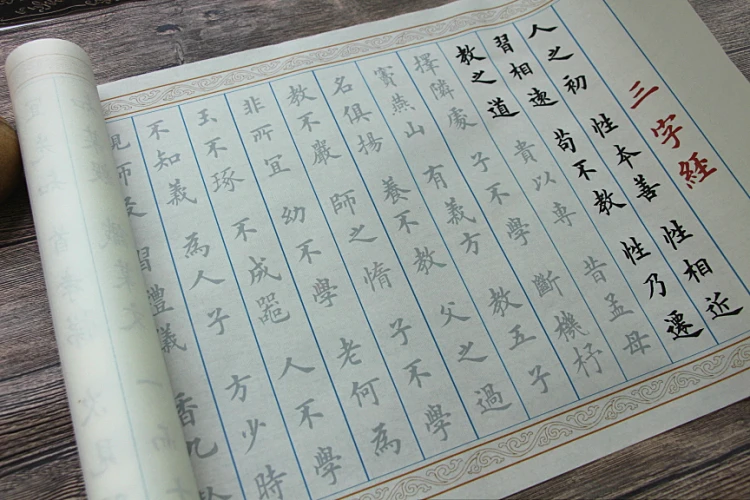 三字經
人之初 性本善 性相近
習相遠 苟不教 性乃遷
教之道 貴以專 昔孟母
擇隣處 子不學 斷機杼
竇燕山 有義方 教五子
名俱揚 養不教 父之過
教不嚴 師之惰 子不學
非所宜 幼不學 老何為
玉不琢 不成器 人不學
不知義 為人子 方少時
師友 習禮 香九